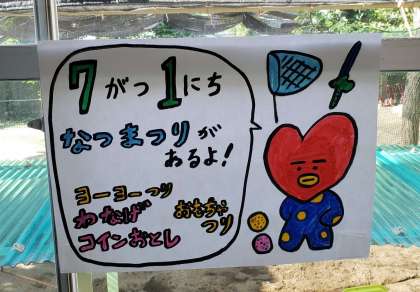 7がつ1にち
なつまつりが
あるよ!
ヨーヨーつり
わなげ
おもちゃ
つり
コインおとし